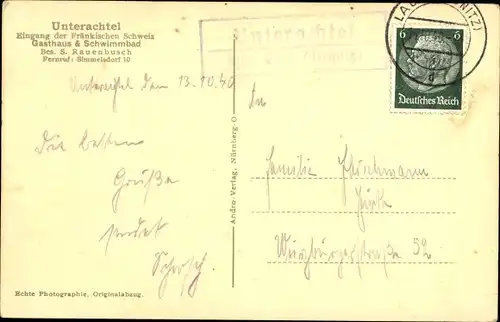 Unterachtel
Eingang der Fränkischen Schweiz
Gasthaus & Schwimmbad
Bes. S. Rauenbusch
Fernruf: Simmelsdorf 10
Unterachtel
6 6
Deutsches Reich
Unterachtel den 13.10.40
Die besten
Grüße
sendet
Andro-Verlag, Nürnberg-O
An
Familie
Fürth
Würzburgerstraße 52
Echte Photographie, Originalabzug.